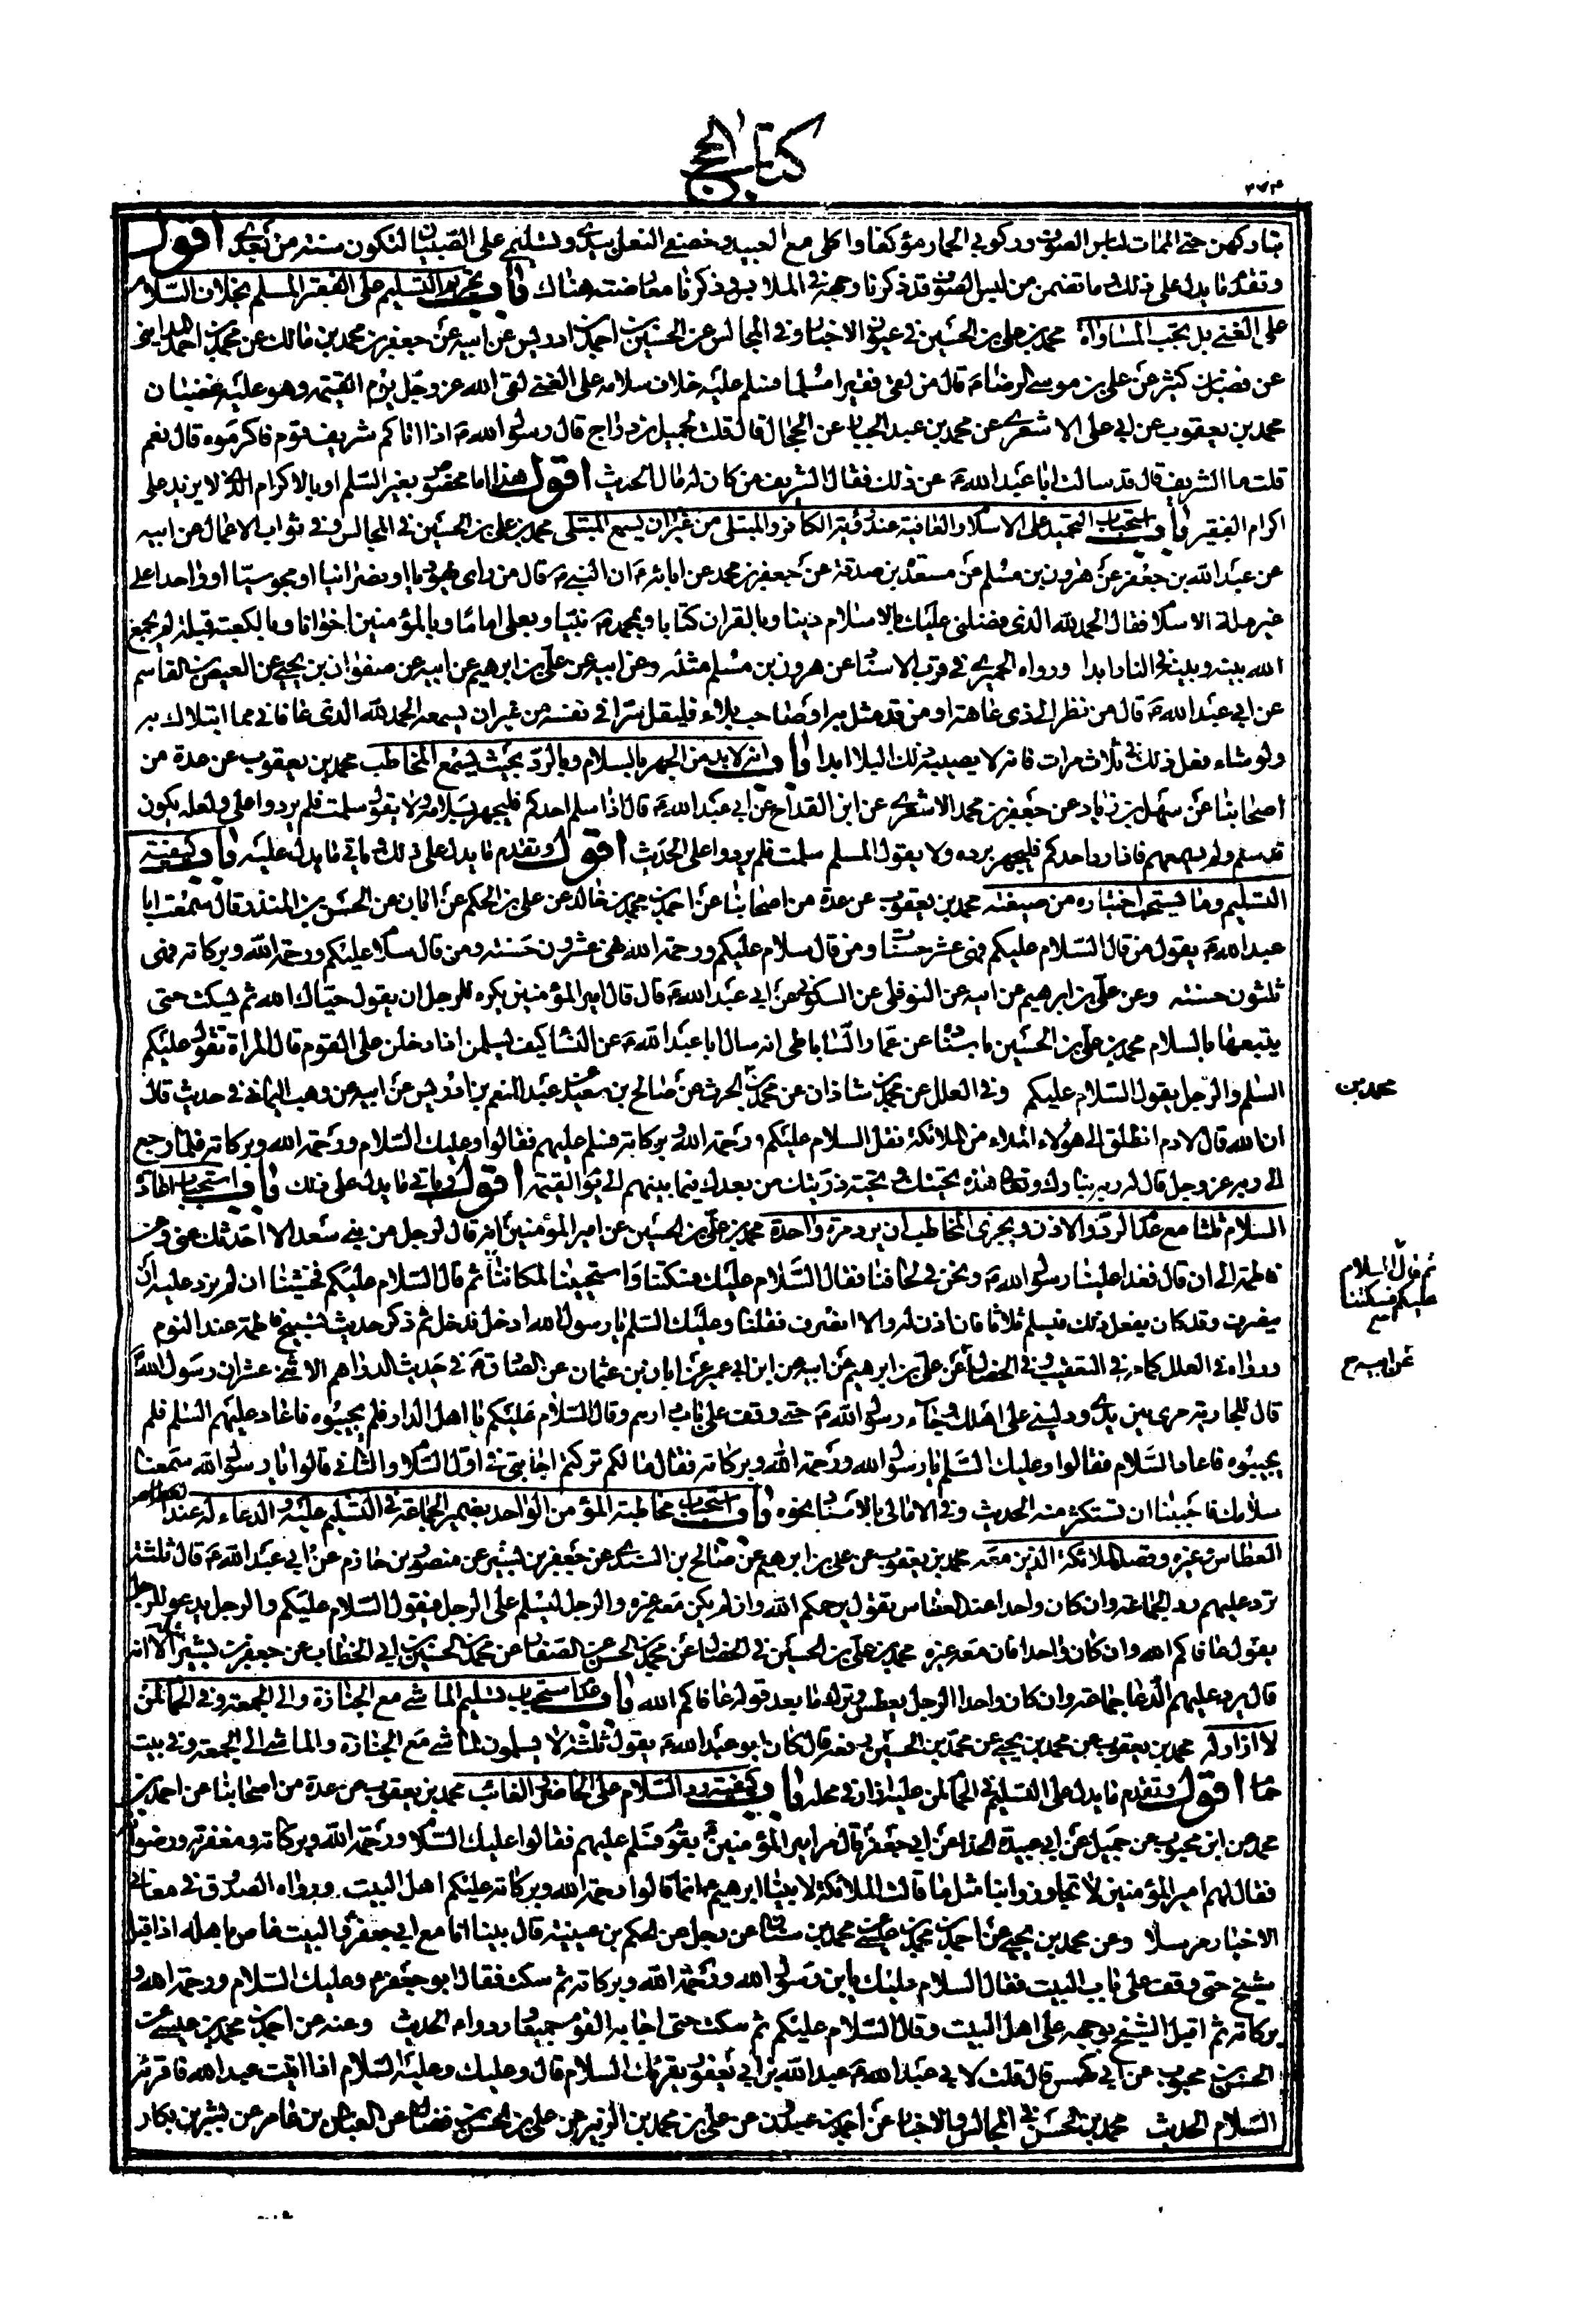 كتاب الحج
بتاركهن حتى الممات لباس الصوف وركوبي الحمار مؤكفا واكلى مع العبيد وخصفى النعل بيدى وتسليمى على الصبيان لتكون سنة من بعدى اقول
وتقدم ما يدل على ذلك وما تضمن من لبس الصوف قد ذكرنا وجهه فى الملابس وذكرنا معارضته هناك باب تحريم التسليم على الفقير المسلم بخلاف السلام
على الغنى بل يجب المساواة محمد بن على بن الحسين فى عيون الاخبار وفى المجالس عن الحسين بن احمد بن ادريس عن ابيه عن جعفر بن محمد بن مالك عن محمد بن احمد المدايني
عن فضل بن كثير عن على بن موسى الرضا ع قال من لقى فقيرا مسلما فسلم عليه خلاف سلامه على الغنى لقى الله عز وجل يوم القيمة وهو عليه غضبان
محمد بن يعقوب عن ابى على الاشعرى عن محمد بن عبد الجبار عن الحجال قال قلت لجميل بن دراج قال رسول الله ص اذا اتاكم شريف قوم فاكرموه قال نعم
قلت ما الشريف قال قد سالت ابا عبد الله ع عن ذلك فقال الشريف من كان له مال الحديث اقول هذا اما مخصوص بغير السلم او بالاكرام الذى لا يزيد على
اكرام الفقير باب استحباب التحميد على الاسلام والعافية عند رؤية الكافر والمبتلى من غير ان يسمع المبتلى محمد بن على بن الحسين فى المجالس وفى ثواب الاعمال عن ابيه
عن عبد الله بن جعفر عن هرون بن مسلم عن مسعدة بن صدقة عن جعفر بن محمد عن ابائه ع ان النبى ص قال من راى يهوديا او نصرانيا او مجوسيا او واحدا على
غير ملة الاسلام فقال الحمد لله الذى فضلنى عليك بالاسلام دينا وبالقران كتابا وبمحمد ص نبيا وبعلى اماما وبالمؤمنين اخوانا وبالكعبة قبلة لم يجمع
الله بينه وبينه فى النار ابدا ورواه الحميرى فى قرب الاسناد عن هرون بن مسلم مثله وعن ابيه عن على بن ابرهيم عن ابيه عن صفوان بن يحيى عن العيص بن القاسم
عن ابى عبد الله ع قال من نظر الى ذى عاهة او من قد مثل به او صاحب بلاء فليقل سرا فى نفسه من غير ان يسمعه الحمد لله الذى عافانى مما ابتلاك به
ولو شاء فعل ذلك بى ثلاث مرات فانه لا يصيبه ذلك البلاء ابدا باب انه لا بد من الجهر بالسلام وبالرد بحيث يسمع المخاطب محمد بن يعقوب عن عدة من
اصحابنا عن سهل بن زياد عن جعفر بن محمد الاشعرى عن ابن القداح عن ابى عبد الله ع قال اذا سلم احدكم فليجهر بسلامه ولا يقول سلمت فلم يردوا على ولعله يكون
قد سلم ولم يسمعهم فاذا رد احدكم فليجهر برده ولا يقول المسلم سلمت فلم يردوا على الحديث اقول وتقدم ما يدل على ذلك وياتى ما يدل عليه باب كيفية
التسليم وما يستحب اختياره من صيغته محمد بن يعقوب عن عدة من اصحابنا عن احمد بن محمد بن خالد عن على بن الحكم عن ابان عن الحسن بن المنذر قال سمعت ابا
عبد الله ع يقول من قال السلام عليكم فهى عشر حسنات ومن قال سلام عليكم ورحمة الله فهى عشرون حسنة ومن قال سلام عليكم ورحمة الله وبركاته فهى
ثلثون حسنة وعن على بن ابرهيم عن ابيه عن النوفلى عن السكونى عن ابى عبد الله ع قال قال امير المؤمنين يكره للرجل ان يقول حياك الله ثم يسكت حتى
يتبعها بالسلام محمد بن على بن الحسين باسناده عن عمار الساباطى انه سال ابا عبد الله ع عن النساء كيف يسلمن اذا دخلن على القوم قال المراة تقول عليكم
السلم والرجل يقول السلام عليكم وفى العلل عن محمد بن شاذان عن محمد بن الحرث عن صالح بن سعيد عن عبد المنعم بن ادريس عن ابيه عن وهب اليمانى فى حديث قال
محمد بن
ان الله قال لادم انطلق الى هؤلاء الملاء من الملائكة فقل السلام عليكم ورحمة الله وبركاته فسلم عليهم فقالوا وعليك السلام ورحمة الله وبركاته فلما رجع
الى ربه عز وجل قال له ربه تبارك وتعالى هذه تحيتك وتحية ذريتك من بعدك فيما بينهم الى يوم القيمة اقول وياتى ما يدل على ذلك باب استحباب اعادة
السلام ثلثا مع عدم الرد والاذن ويجزى المخاطب ان يرد مرة واحدة محمد بن على بن الحسين عن امير المؤمنين انه قال لرجل من بنى سعد الا احدثك عنى وعن
فاطمة الى ان قال فغدا علينا رسول الله ص ونحن فى لحافنا فقال السلام عليك فسكتنا واستحيينا لمكاننا ثم قال السلام عليكم فخشينا ان لم نرد عليه ان
ثم قال السلام
عليكم فسكتنا
صح
ينصرف وقد كان يفعل ذلك فيسلم ثلاثا فان اذن له والا انصرف فقلنا وعليك السلم يا رسول الله ادخل فدخل ثم ذكر حديث تسبيح فاطمة عند النوم
ورواه فى العلل كما مر فى التعقيب وفى الخصال عن على بن ابرهيم عن ابيه عن ابن ابى عمير عن ابان بن عثمان عن الصادق ع فى حديث الدراهم الاثنى عشر ان رسول الله ص
عن ابيه صح
قال للجارية مرى بين يدى ودلينى على اهلك وجاء رسول الله ص حتى وقف على باب دارهم وقال السلام عليكم يا اهل الدار فلم يجيبوه فاعاد عليهم السلم فلم
يجيبوه فاعاد السلام فقالوا وعليك السلم يا رسول الله ورحمة الله وبركاته فقال ما لكم تركتم اجابتى فى اول السلام والثانى قالوا يا رسول الله سمعنا
سلامك فاحببنا ان نستكثر منه الحديث وفى الامالى بالاسناد نحوه باب استحباب مخاطبة المؤمن الواحد بضمير الجماعة فى التسليم عليه والدعاء له عند
العطاس من غيره وقصد الملائكة الذين معه محمد بن يعقوب عن على بن ابرهيم عن صالح بن السندى عن جعفر بن بشير عن منصور بن حازم عن ابى عبد الله ع قال ثلثة
ترد عليهم رد الجماعة وان كان واحدا عند العطاس يقول يرحمكم الله وان لم يكن معه غيره والرجل يسلم على الرجل فيقول السلام عليكم والرجل يدعو للرجل
يقول عافاكم الله وان كان واحدا فان معه غيره محمد بن على بن الحسين فى الخصال عن محمد بن الحسن عن الصفار عن محمد بن الحسين بن ابى الخطاب عن جعفر بن بشير الا انه
قال يرد عليهم الدعاء جماعة وان كان واحدا الرجل يعطس وترك ما بعد قوله عافاكم الله باب عدم استحباب تسليم الماشى مع الجنازة والى الجمعة وفى الحمام لمن
لا ازار له محمد بن يعقوب عن محمد بن يحيى عن محمد بن الحسين رفعه قال كان ابو عبد الله ع يقول ثلثة لا يسلمون الماشى مع الجنازة والماشى الى الجمعة وفى بيت
حمام اقول وتقدم ما يدل على التسليم فى الحمام لمن عليه ازار فى محله باب كيفية رد السلام على الحاضر والغائب محمد بن يعقوب عن عدة من اصحابنا عن احمد بن
محمد عن ابن محبوب عن جميل عن ابى عبيدة الحذاء عن ابى جعفر قال مر امير المؤمنين ع بقوم فسلم عليهم فقالوا عليك السلام ورحمة الله وبركاته ومغفرته ورضوانه
فقال لهم امير المؤمنين لا تجاوزوا بنا مثل ما قالت الملائكة لابينا ابرهيم انما قالوا رحمة الله وبركاته عليكم اهل البيت ورواه الصدوق فى معانى
الاخبار مرسلا وعن محمد بن يحيى عن احمد بن محمد بن عيسى عن محمد بن سنان عن رجل عن الحكم بن عيينة قال بينا انا مع ابى جعفر والبيت غاص باهله اذ اقبل
شيخ حتى وقف على باب البيت فقال السلام عليك يا بن رسول الله ورحمة الله وبركاته ثم سكت فقال ابو جعفر ع وعليك السلام ورحمة الله و
بركاته ثم اقبل الشيخ بوجهه على اهل البيت وقال السلام عليكم ثم سكت حتى اجابه القوم جميعا وردوا ع الحديث وعنه عن احمد بن محمد بن عيسى عن
الحسن بن محبوب عن ابى كهمس قال قلت لابى عبد الله ع عبد الله بن ابى يعفور يقرئك السلام قال وعليك وعليه السلام اذا اتيت عبد الله فاقرئه
السلام الحديث محمد بن الحسن فى المجالس والاخبار عن احمد بن عبدون عن على بن محمد بن الزبير عن على بن الحسن بن فضال عن العباس بن عامر عن بشر بن بكار